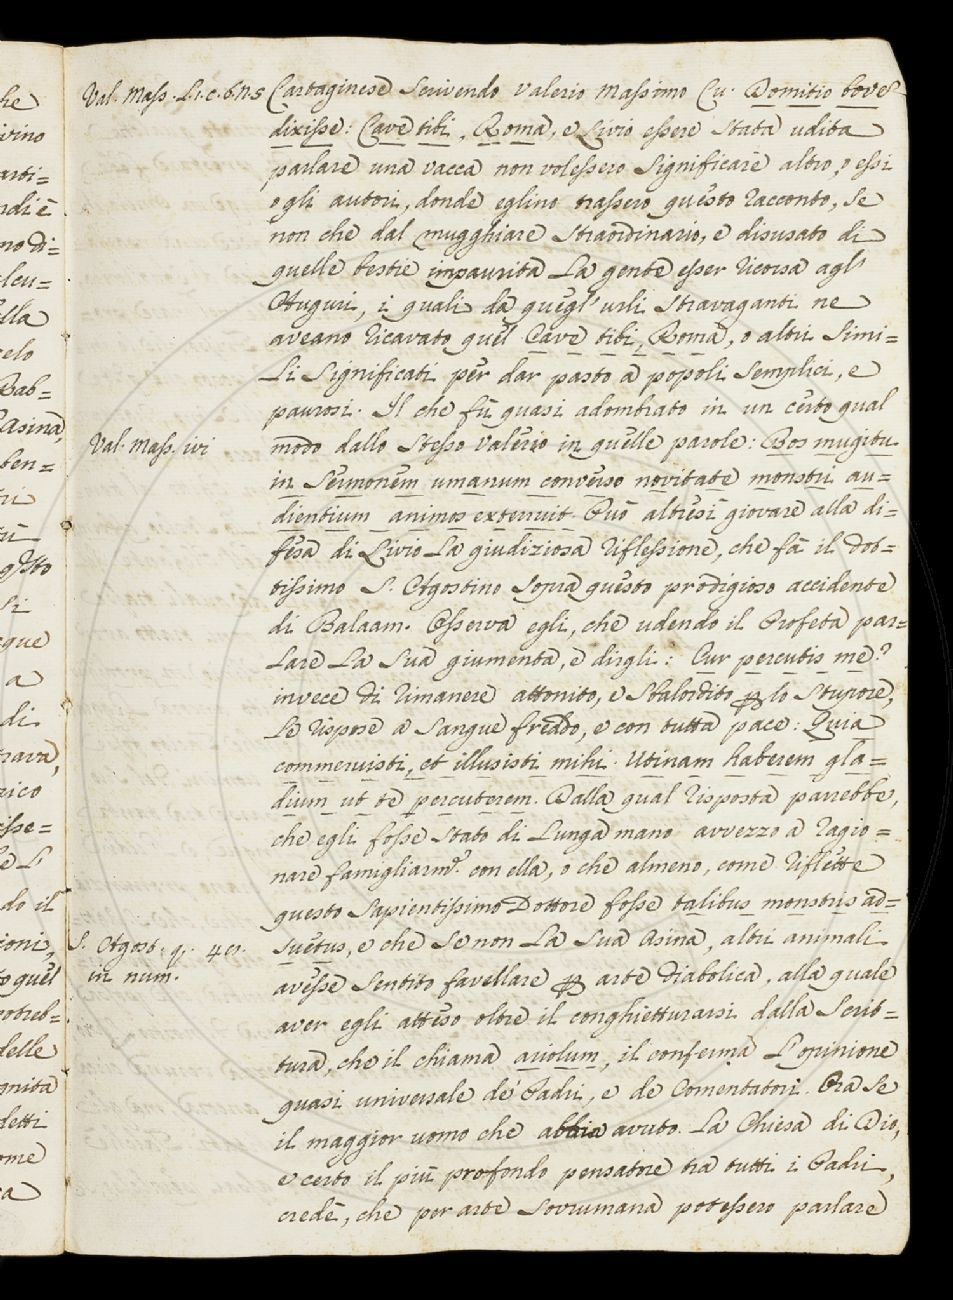 Val. Mass. L. 1. c. 6. n. 5
Cartaginese scrivendo Valerio Massimo Cn. Domitio bovẽ
dixisse: Cave tibi, Roma, e Livio essere stata udita
parlare una vacca non volessero significare altro, o essi
o gli autori, donde eglino trassero questo racconto, se
non che dal mugghiare straordinario, e disusato di
quelle bestie impaurita la gente esser ricorsa agl'
Auguri, i quali da quegl' urli stravaganti ne
aveano ricavato quel Cave tibi, Roma, o altri simi=
li significati per dar pasto a popoli semplici, e
paurosi. Il che fù quasi adombrato in un certo qual
Val. Mass. ivi
modo dallo stesso Valerio in quelle parole: Bos mugitu
in sermonem umanum converso novitate monstri au=
dientium animos exterruit. Può altresì giovare alla di=
fesa di Livio la giudiziosa riflessione, che fà il dot=
tissimo S. Agostino sopra questo prodigioso accidente
di Balaam. Osserva egli, che udendo il Profeta par=
lare la sua giumenta, e dirgli: Cur percutis me?
invece di rimanere attonito, e sbalordito ꝑ lo stupore,
le rispose a sangue freddo, e con tutta pace: Quia
commeruisti, et illusisti mihi. Utinam haberem gla=
dium ut te percuterem. Dalla qual risposta parrebbe,
che egli fosse stato di lunga mano avvezzo a ragio=
nare famigliarmẽ. con ella, o che almeno, come riflette
questo sapientissimo Dottore fosse talibus monstris ad=
S. Agost. q. 48.
in num.
suetus, e che se non la sua asina, altri animali
avesse sentito favellare ꝑ arte diabolica, alla quale
aver egli atteso oltre il conghietturarsi dalla Scrit=
tura, che il chiama ariolum, il conferma l'opinione
quasi universale de' Padri, e de Comentatori. Ora se
il maggior uomo che abbia avuto la Chiesa di Dio,
e certo il più profondo pensatore tra tutti i Padri,
crede, che per arte sovrumana potessero parlare